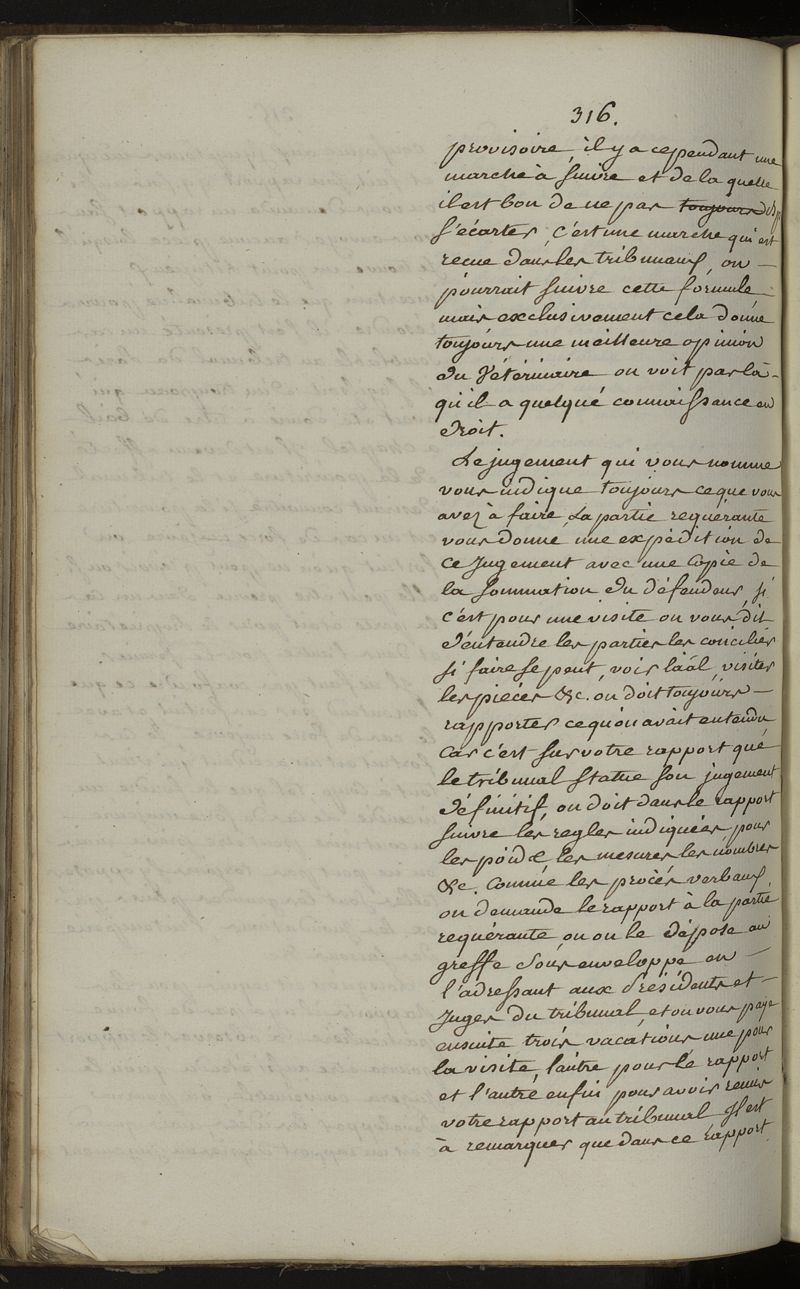 316.
provisoire, il y a cependant une
marche à suivre et de la quelle
il est bon de ne pas toujours
s'écarter, c'est une marche qui est
recue dans les tribunaux, on —
pourrait suivre cette formule
mais exclusivement cela donne
toujours une meilleure opinion
du Vétérinaire on voit par là -
qu'il a quelque connaissance en
droit.
Le jugement qui vous nomme
vous indique toujours ce que vous
avez à faire, La partie requérante
vous donne une expédition de
ce Jugement avec une Copie de
la sommation du défendeur, si
c'est pour une visite on vous dit
d'entendre les parties les concilier
si faire se peut, voir l'aãl, visiter
les pieces &c. on doit toujours —
rapporter ce qu'on avait entendu
Car c'est sur votre rapport que
le tribunal statue son jugement
définitif, on doit dans le rapport
suivre les regles indiquées pour
les poids, les mesures les nombres
&c. Comme les procès verbaux,
on demande le rapport à la partie
requérante ou on le dépose au
greffe sous enveloppe en —
l'adressant aux Présidents et —
Juges du tribunal, et on vous paye
ensuite trois vacations une pour
la visite, l'autre pour le rapport
et l'autre enfin pour avoir remis
votre rapport au tribunal Il est
à remarquer que dans ce rapport